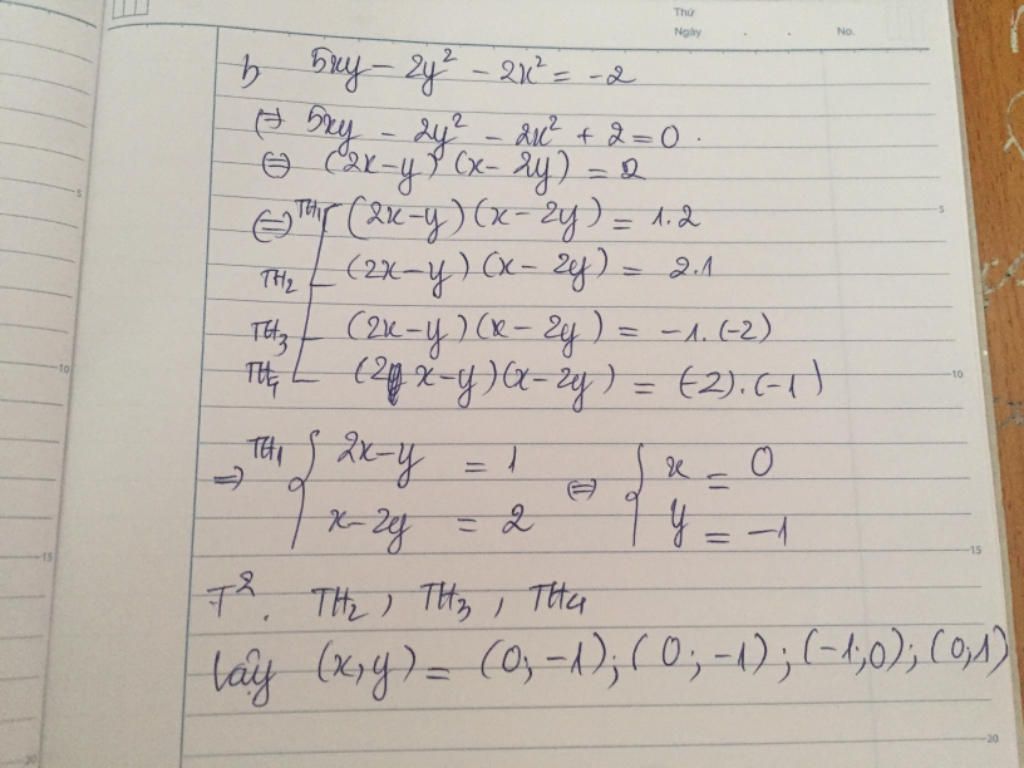 Thứ
Ngày . . No.
b 5xy - 2y² - 2x² = -2
⇔ 5xy - 2y² - 2x² + 2 = 0.
⇔ (2x-y) (x-2y) = 2
⇔ TH1 (2x-y)(x-2y) = 1.2
TH2 (2x-y)(x-2y) = 2.1
TH3 (2x-y)(x-2y) = -1.(-2)
TH4 (2x-y)(x-2y) = (-2).(-1)
⇒ TH1 { 2x-y = 1 ⇔ { x = 0
x-2y = 2 y = -1
T². TH2, TH3, TH4
Vậy (x,y) = (0;-1); (0;-1); (-1;0); (0,1)
5
10
15
20
5
10
15
20